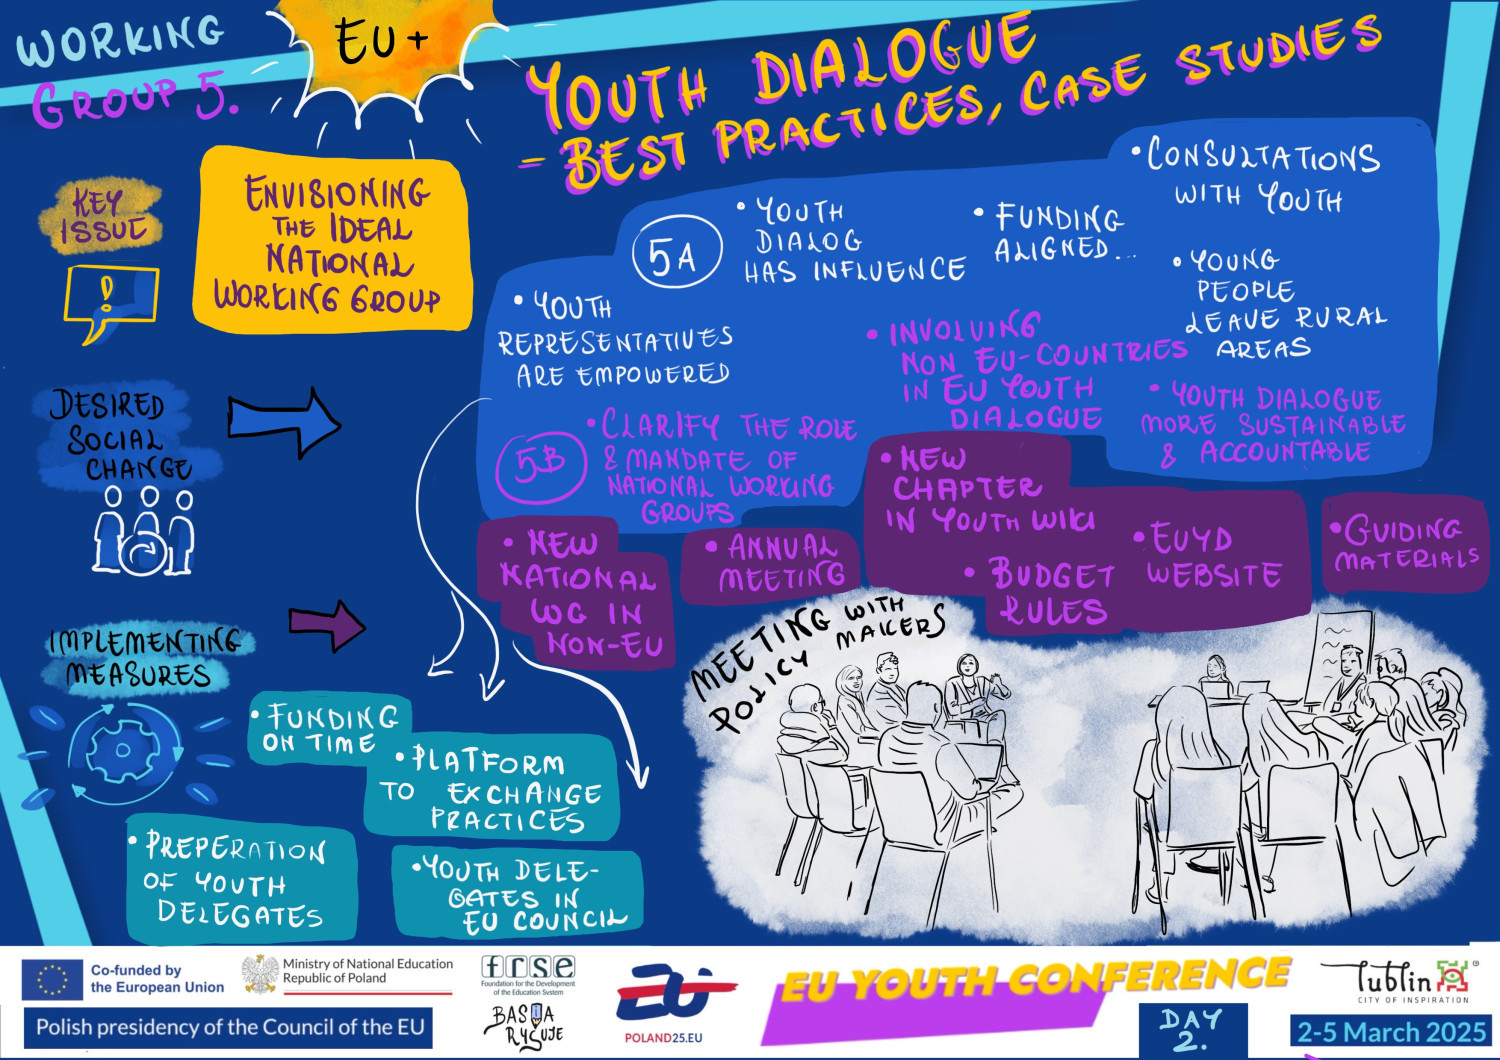 WORKING
GROUP 5.
EU+
YOUTH DIALOGUE
- BEST PRACTICES, CASE STUDIES
KEY
ISSUE
!
ENVISIONING
THE IDEAL
NATIONAL
WORKING GROUP
DESIRED
SOCIAL
CHANGE
5A
• YOUTH
REPRESENTATIVES
ARE EMPOWERED
• YOUTH
DIALOG
HAS INFLUENCE
• FUNDING
ALIGNED...
• CONSULTATIONS
WITH YOUTH
• YOUNG
PEOPLE
LEAVE RURAL
AREAS
5B
• CLARIFY THE ROLE
& MANDATE OF
NATIONAL WORKING
GROUPS
• INVOLVING
NON EU-COUNTRIES
IN EU YOUTH
DIALOGUE
• YOUTH DIALOGUE
MORE SUSTAINABLE
& ACCOUNTABLE
IMPLEMENTING
MEASURES
• NEW
NATIONAL
WG IN
NON-EU
• ANNUAL
MEETING
• NEW
CHAPTER
IN YOUTH WIKI
• BUDGET
RULES
• EUYD
WEBSITE
• GUIDING
MATERIALS
• FUNDING
ON TIME
• PLATFORM
TO EXCHANGE
PRACTICES
• PREPERATION
OF YOUTH
DELEGATES
• YOUTH DELE-
GATES IN
EU COUNCIL
MEETING WITH
POLICY MAKERS
Co-funded by
the European Union
Ministry of National Education
Republic of Poland
Polish presidency of the Council of the EU
frse
Foundation for the Development
of the Education System
BASIA
RYSUJE
POLAND25.EU
EU YOUTH CONFERENCE
DAY
2.
lublin
CITY OF INSPIRATION
2-5 March 2025